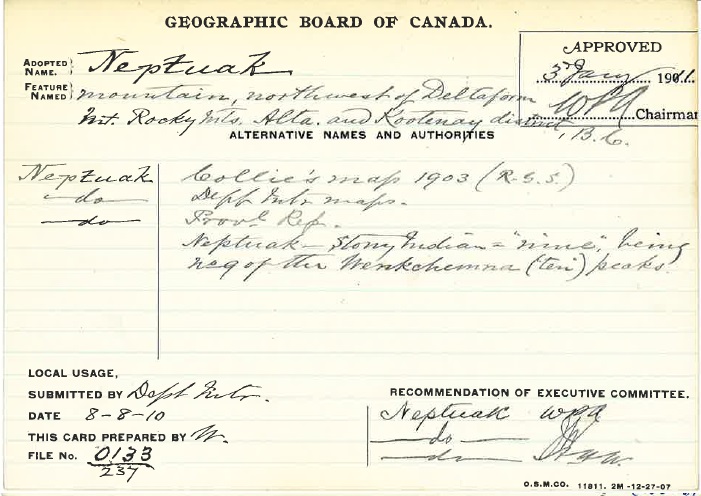 GEOGRAPHIC BOARD OF CANADA.
APPROVED
3rd Jany 1911
Chairman
ADOPTED NAME. Neptuak
FEATURE NAMED mountain, northwest of Deltaform
Mt. Rocky Mts. Alta. and Kootenay district, B.C.
ALTERNATIVE NAMES AND AUTHORITIES
Neptuak Collie's map 1903 (R.G.S.)
—do— Dept Intr maps.
—do— Provl Rep.
Neptuak — Stony Indian = "nine", being
neq of the Wenkchemna (ten) peaks.
LOCAL USAGE,
SUBMITTED BY Dept Intr.
DATE 8-8-10
THIS CARD PREPARED BY W.
FILE No. 0133
237
RECOMMENDATION OF EXECUTIVE COMMITTEE.
Neptuak
—do—
—do—
O.B.M.CO. 11811. 2M-12-27-07